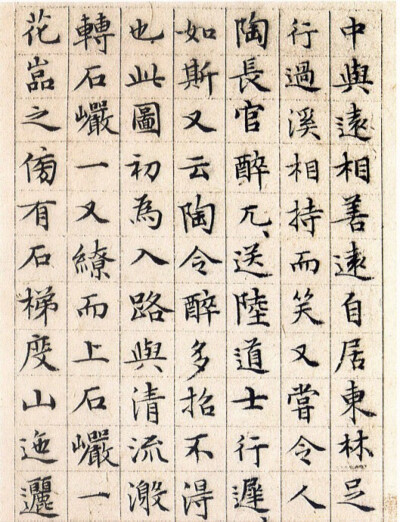 中與遠相善遠自居東林足
行過溪相持而笑又嘗令人
陶長官醉兀々送陸道士行遲
如斯又云陶令醉多招不淂
也此圖初為入路與清流激
轉石巖一又繚而上石巖一
花嵓之傍有石梯度山迤邐